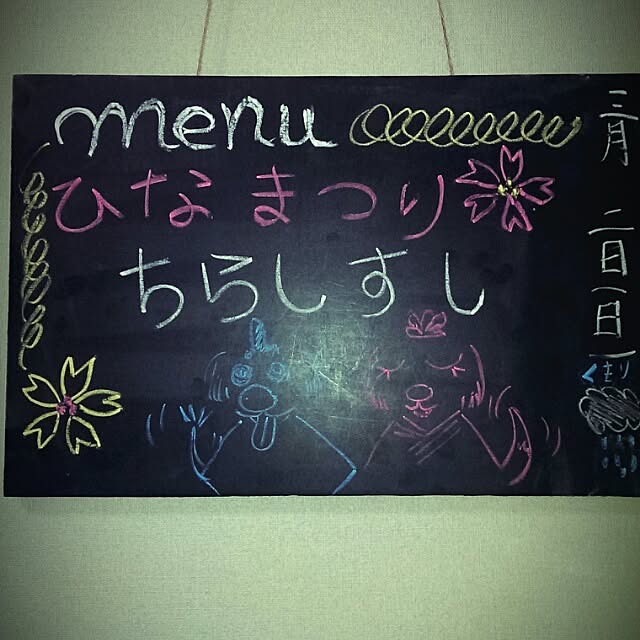 menu
ひなまつり
ちらしすし
三月 二日(日)
くもり